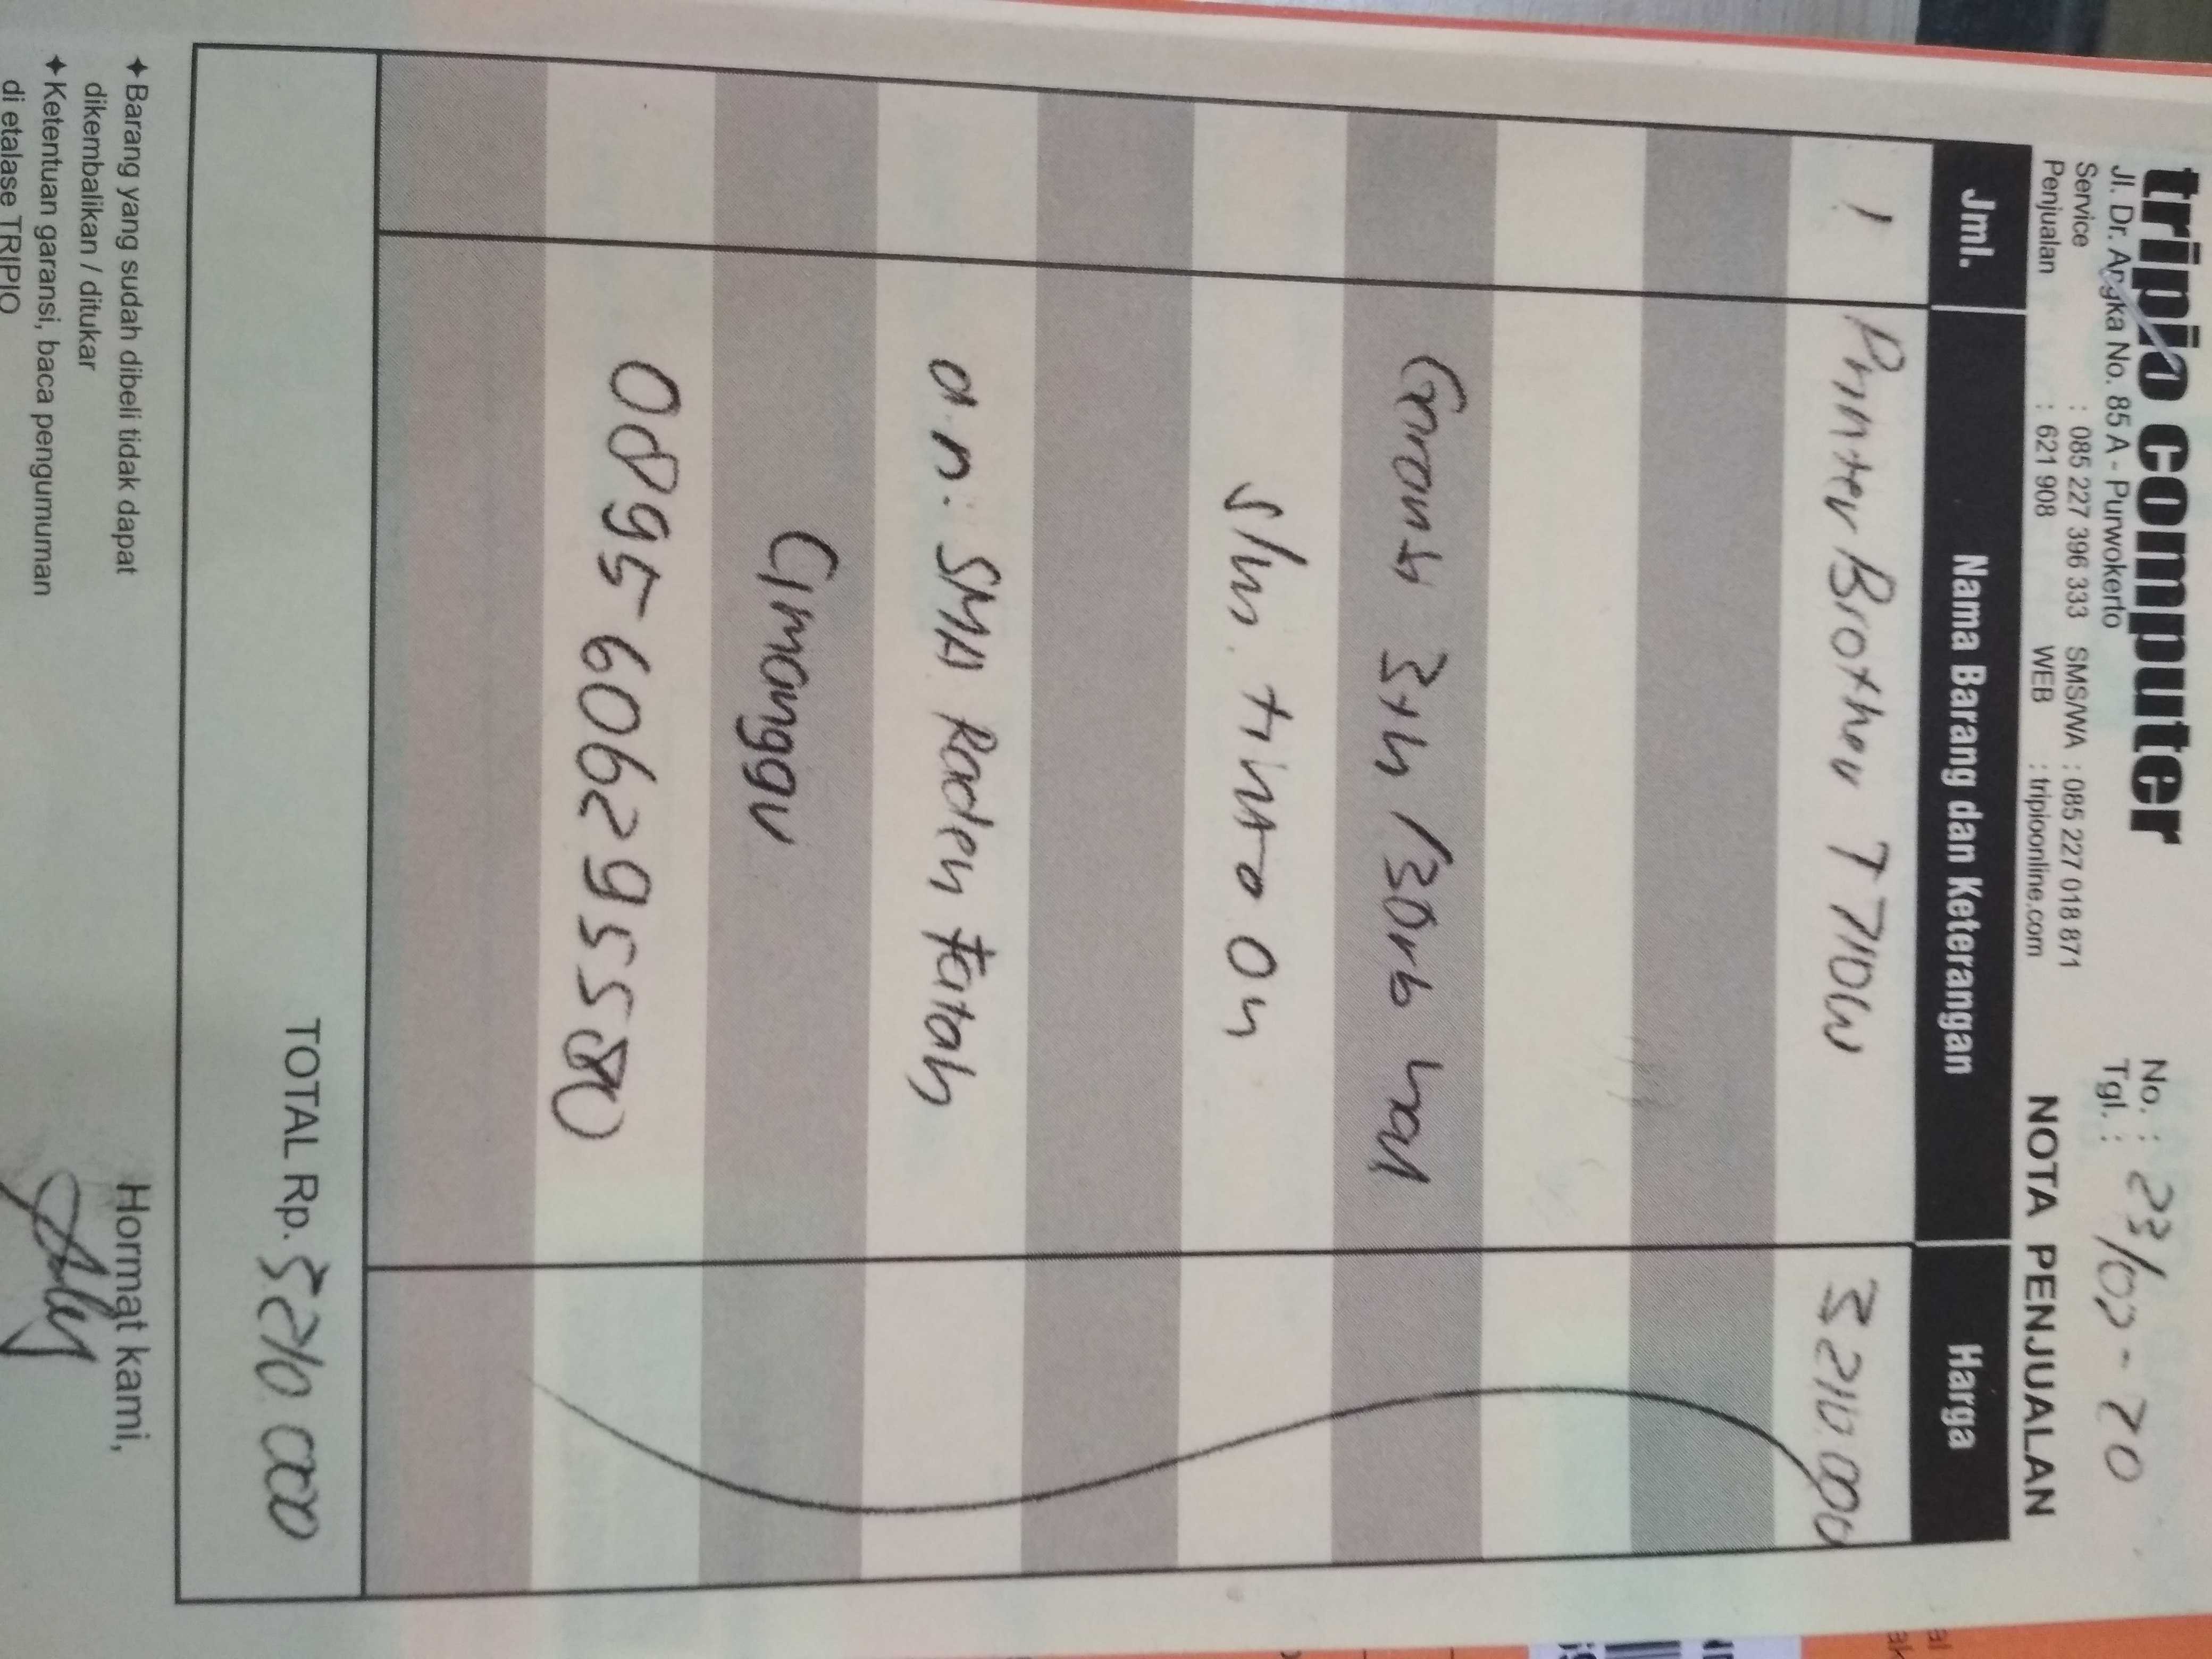 tripio computer
Jl. Dr. Angka No. 85 A - Purwokerto
Service : 085 227 396 333 SMS/WA : 085 227 018 871
Penjualan : 621 908 WEB : tripioonline.com
No. :
Tgl. : 23/02-20
NOTA PENJUALAN
Jml. Nama Barang dan Keterangan Harga
1 Printer Brother T 710W 3.210.000
Garansi 3th /30rb hal
s/n.
a.n: SMA Raden Fatah
Cimanggu
0895606295580
TOTAL Rp. 3.210.000
✦Barang yang sudah dibeli tidak dapat
dikembalikan / ditukar
✦Ketentuan garansi, baca pengumuman
di etalase TRIPIO
Hormat kami,